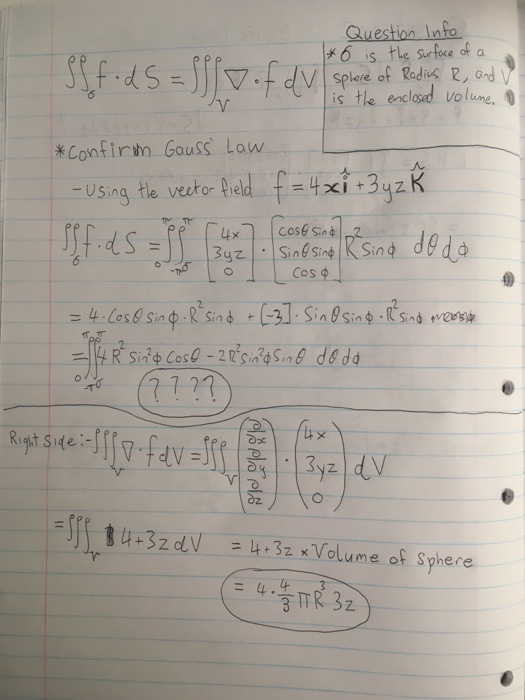 Question Info
* σ is the surface of a
sphere of Radius R, and V
is the enclosed volume.
∬_σ f · dS = ∭_V ∇ · f dV
* Confirm Gauss' Law
- Using the vector field f = 4x î + 3yz k̂
∬_σ f · dS = ∫_0^π ∫_{-π}^π [4x 3yz 0] · [cosθ sinϕ sinθ sinϕ cosϕ] R² sinϕ dθ dϕ
= 4 · cosθ sinϕ · R² sinϕ + [-3] · sinθ sinϕ · R² sinϕ
= ∫_0^π ∫_{-π}^π 4R² sin²ϕ cosθ - 2R² sin²ϕ sinθ dθ dϕ
????
Right Side :- ∭_V ∇ · f dV = ∭_V (∂/∂x ∂/∂y ∂/∂z) · (4x 3yz 0) dV
= ∭_V 4 + 3z dV = 4 + 3z × Volume of Sphere
= 4 · 4/3 πR³ 3z